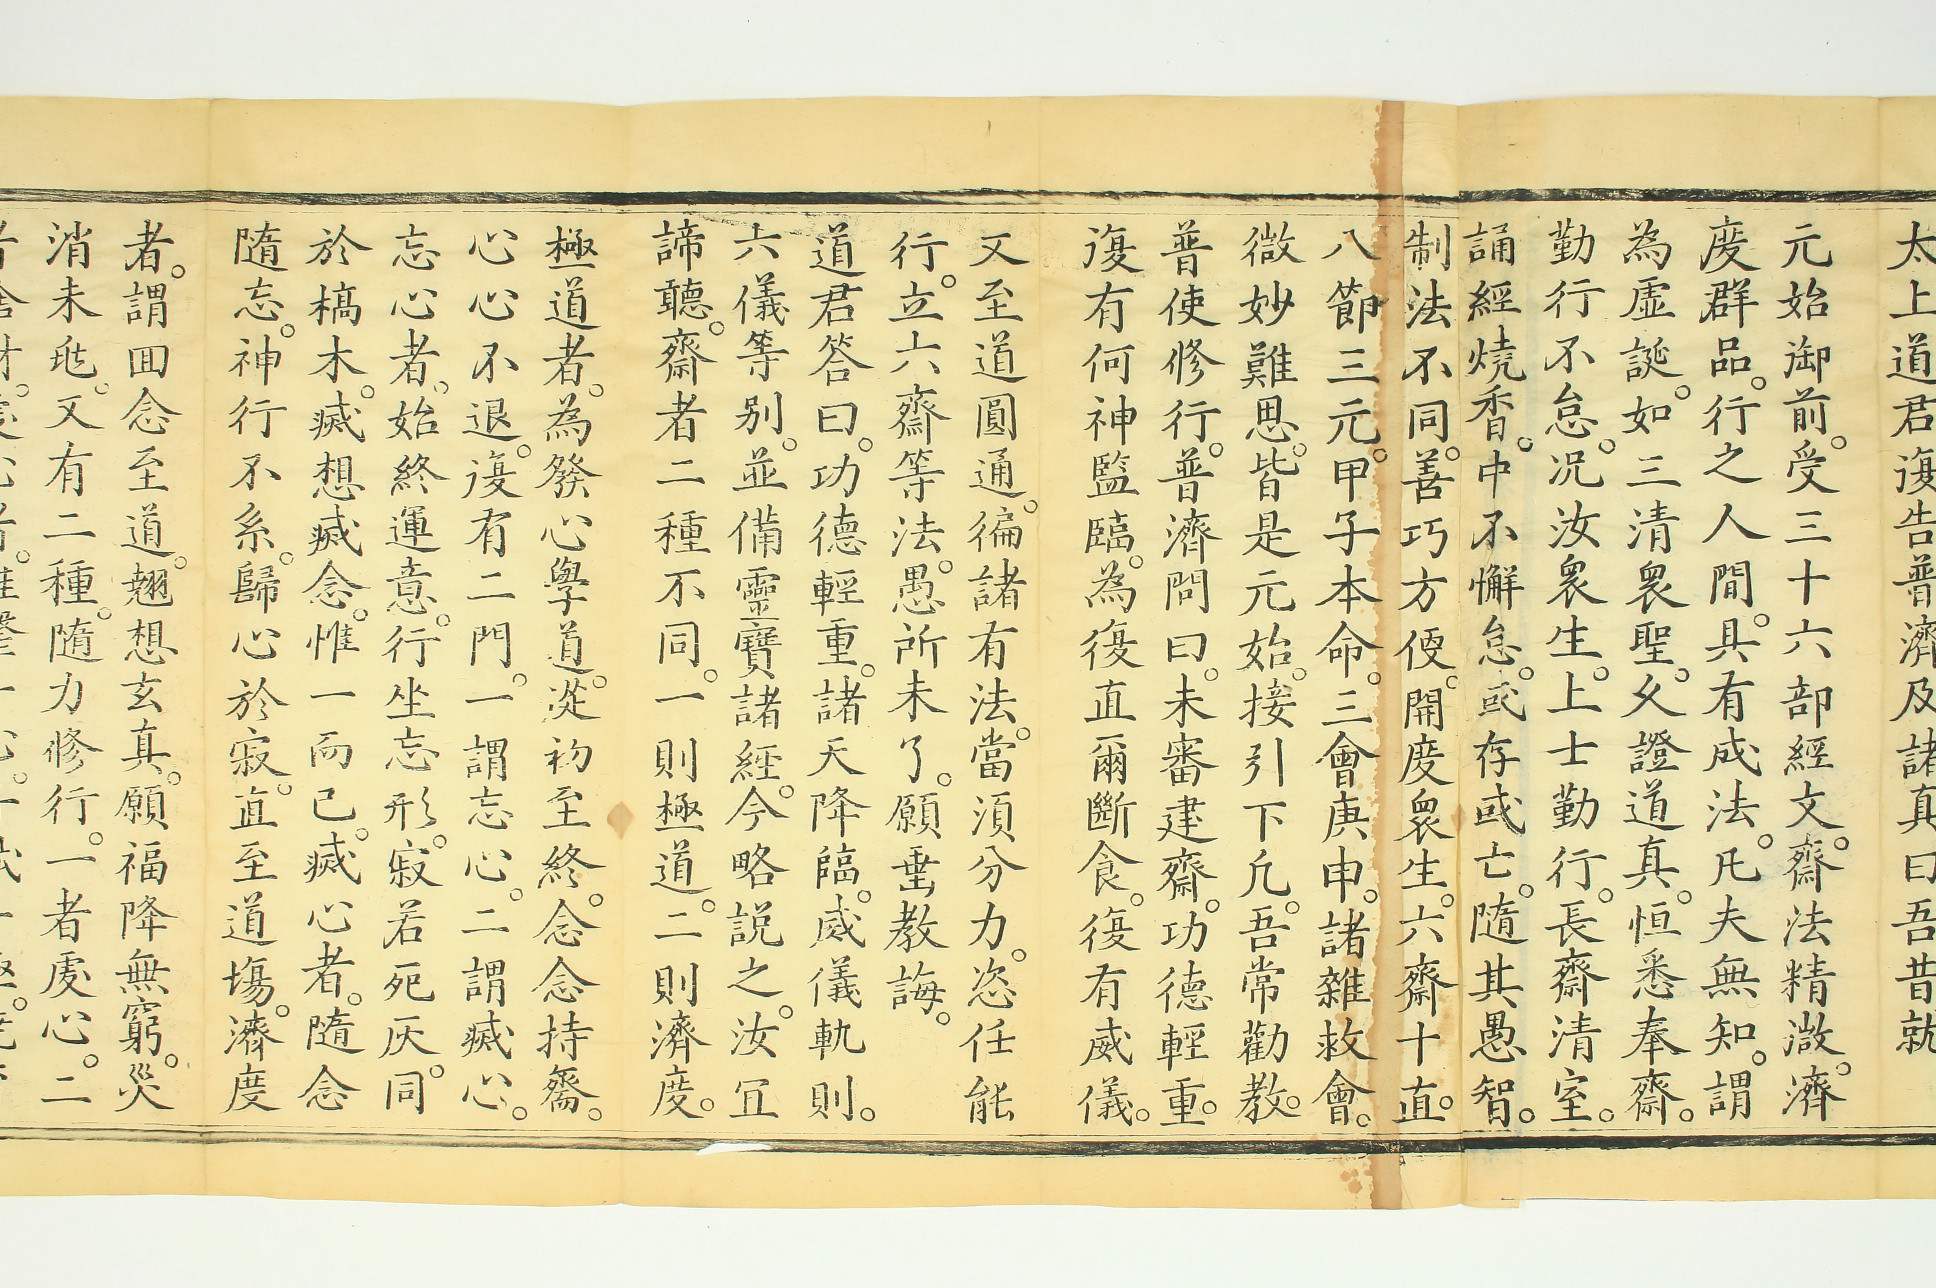 太上道君復告普濟及諸真曰吾昔就
元始御前。受三十六部經文。齋法精微。濟
度群品。行之人間。具有成法。凡夫無知。謂
為虛誕。如三清眾聖。久證道真。恒悉奉齋。
勤行不怠。况汝眾生。上士勤行。長齋清室。
誦經燒香。中不懈怠。或存或亡。隨其愚智。
制法不同。善巧方便。開度眾生。六齋十直。
八節三元。甲子本命。三會庚申。諸雜救會。
微妙難思。皆是元始。接引下凡。吾常勸教。
普使修行。普濟問曰。未審建齋。功德輕重。
復有何神監臨。為復直爾斷食。復有威儀。
又至道圓通。徧諸有法。當須分力。恣任能
行。立六齋等法。愚所未了。願垂教誨。
道君答曰。功德輕重。諸天降臨。威儀軌則。
六儀等別。並備靈寶諸經。今略說之。汝宜
諦聽。齋者二種不同。一則極道。二則濟度。
極道者。為發心學道。從初至終。念念持齋。
心心不退。復有二門。一謂忘心。二謂滅心。
忘心者。始終運意。行坐忘形。寂若死灰。同
於槁木。滅想滅念。惟一而已。滅心者。隨念
隨忘。神行不系。歸心於寂。直至道塲。濟度
者。謂回念至道。翹想玄真。願福降無窮。災
消未兆。又有二種。隨力修行。一者處心。二